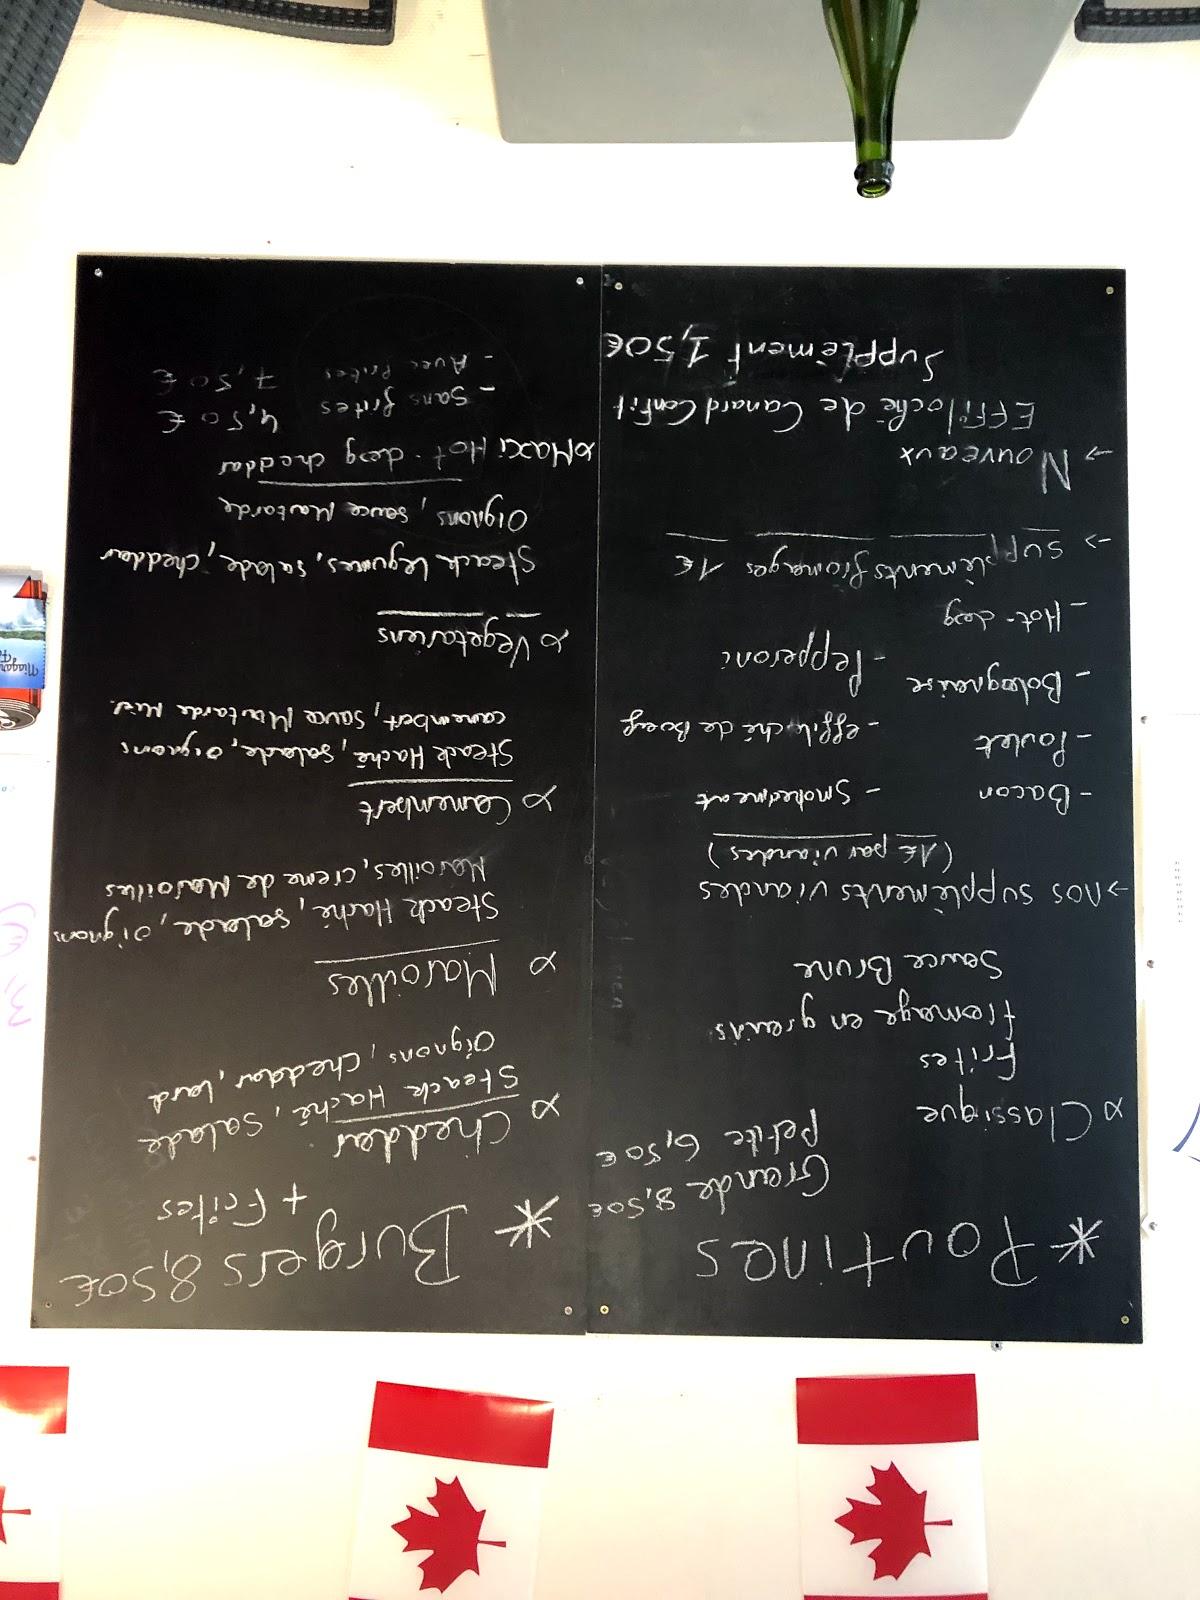 * Poutines
Grande 8,50€
petite 6,50€
x Classique
Frites
fromage en grains
Sauce Brune
→ nos suppléments viandes
(1€ par viandes)
- Bacon - Smokedmeat
- Poulet - effiloché de Boeuf
- Bolognaise - Pepperoni
- Hot-dog
→ suppléments fromages 1€
→ Nouveaux
Effiloché de Canard Confit
Supplément 1,50€
* Burgers 8,50€
+ Frites
x Cheddar
Steack Haché, Salade
Oignons, Cheddar, lard
x Maroilles
Steack Haché, salade, oignons
Maroilles, crème de Maroilles
x Camembert
Steack Haché, salade, oignons
camembert, sauce Moutarde Miel
x Vegetariens
Steack légumes, salade, cheddar
Oignons, sauce Moutarde
x Maxi Hot-dog cheddar
- Sans frites 4,50 €
- Avec frites 7,50 €
Niagara